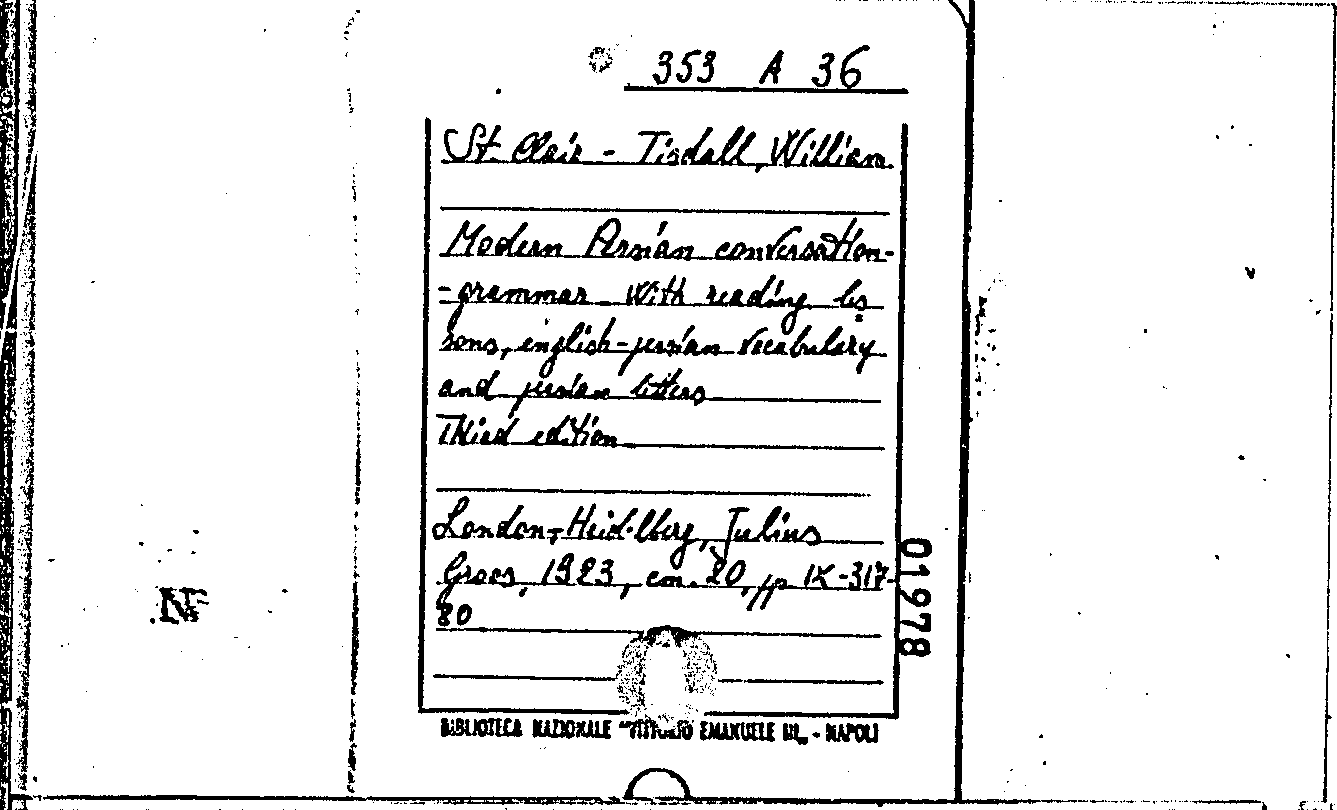 353 A 36
St. Clair - Tisdall, William
Modern Persian conversation-
-grammar. With reading les
sons, english-persian vocabulary
and persian letters
Third edition
London-Heidelberg, Julius
Groos, 1923, cm. 20, pp IX-317-
80
01978
BIBLIOTECA NAZIONALE "VITTORIO EMANUELE III„ - NAPOLI
NF